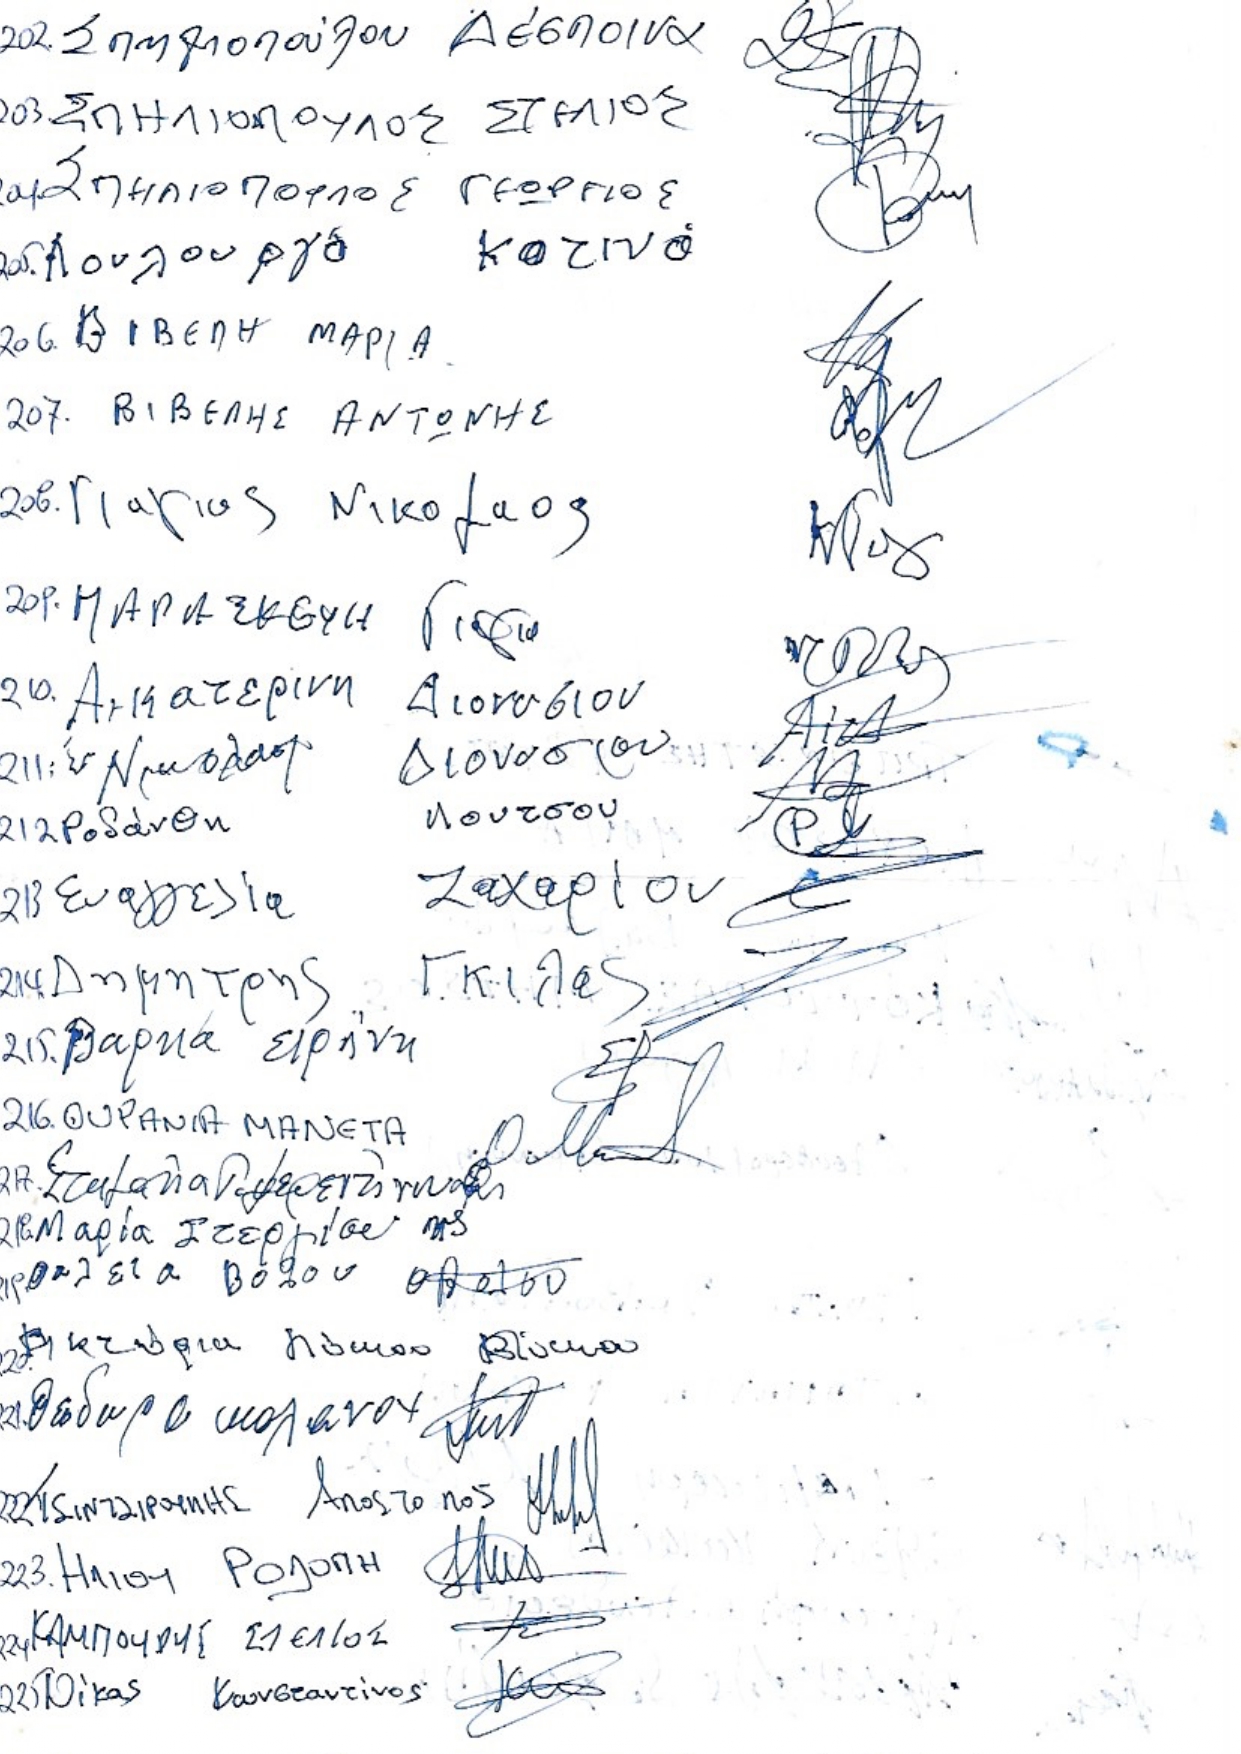 202. Σπηλιοπούλου Δέσποινα
203. ΣΠΗΛΙΟΠΟΥΛΟΣ ΣΤΕΛΙΟΣ
204. ΣΠΗΛΙΟΠΟΥΛΟΣ ΓΕΩΡΓΙΟΣ
205. Λουλουργά Κατίνα
206. ΒΙΒΕΛΗ ΜΑΡΙΑ
207. ΒΙΒΕΛΗΣ ΑΝΤΩΝΗΣ
208. Νικόλαος
209. ΠΑΡΑΣΚΕΥΗ
210. Αικατερίνη Διονυσίου
211. Νικόλαος Διονυσίου
212 Ροδάνθη Κουτσου
213 Ευαγγελία Ζαχαρίου
214. Δημήτρης Γκιλας
215. Βαρκα ειρήνη
216. ΟΥΡΑΝΙΑ ΜΑΝΕΤΑ
217. Σταματία
218. Μαρία Στεργίου
219. Θαλεια Βόζου
220. Βικτώρια Κόκκου
221. Θεδωρα
222. Αποστολος
223. ΗΛΙΟΥ ΡΟΔΟΠΗ
224. ΚΑΜΠΟΥΡΗΣ ΣΤΕΛΙΟΣ
225. Νίκας Κωνσταντίνος